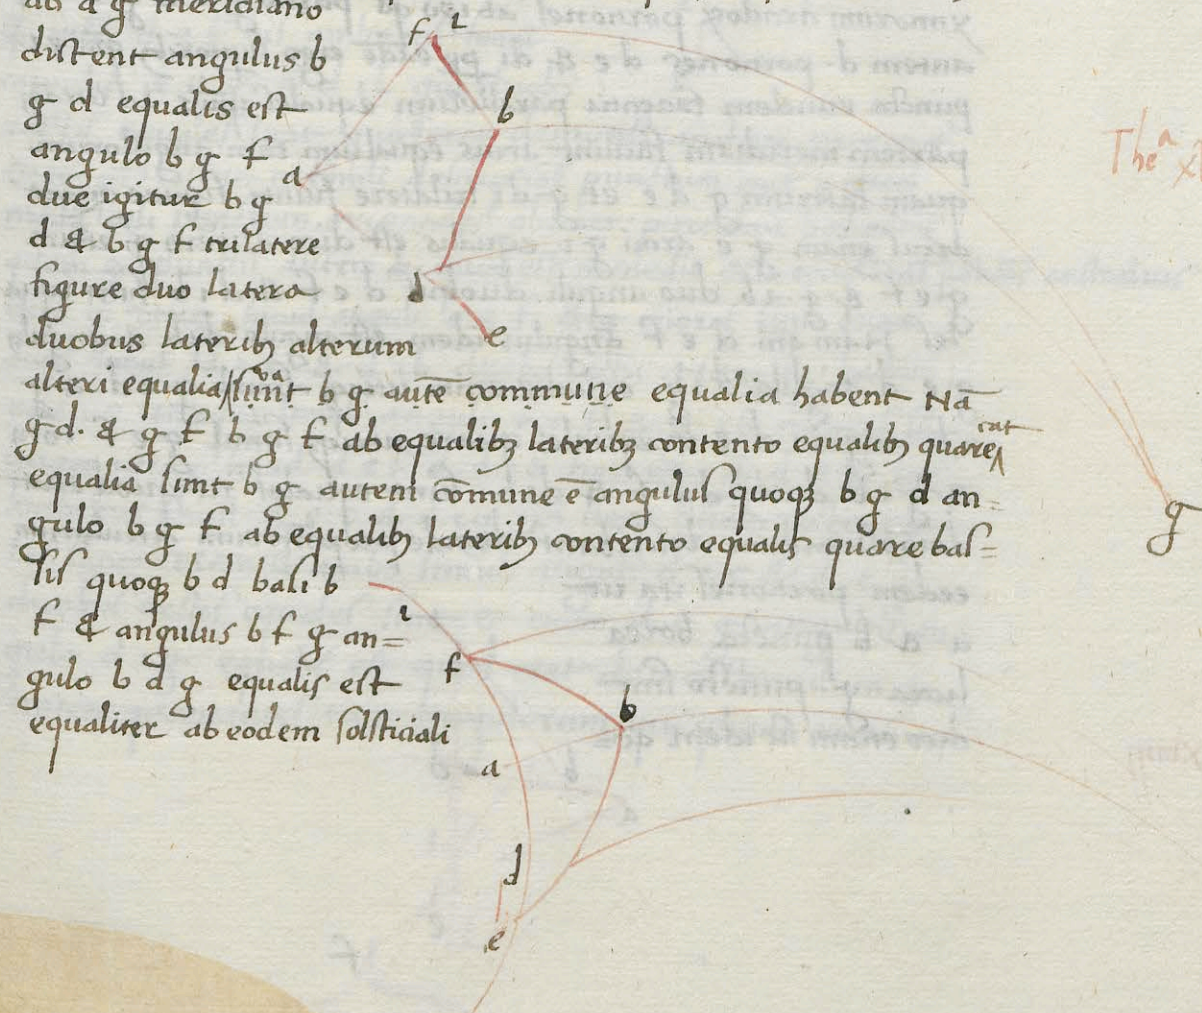 ab a g meridiano
distent angulus b
g d equalis est
angulo b g f
due igitur b g
d & b g f trilatere
figure duo latera
duobus laterib₃ alterum
alteri equalia sunt b g autē commune equalia habent Nā
g d. & g f b g f ab equalib₃ laterib₃ contento equalib₃ quare
equalia sunt b g autem cōmune ē angulus quoqꝫ b g d an=
gulo b g f ab equalib₃ laterib₃ contento equalis quare bas=
sis quoqꝫ b d basi b
f & angulus b f g an=
gulo b d g equalis est
equaliter ab eodem solsticiali
f
b
a
d
e
g
Theᵃ
f
b
a
d
e